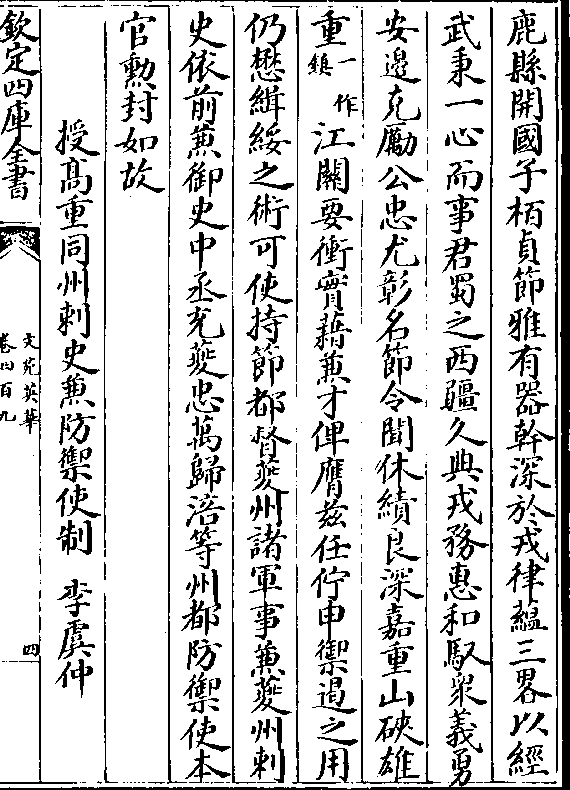 鹿縣開國子栢貞節雅有器幹深於戎律蘊三畧以經
武秉一心而事君蜀之西疆久典戎務惠和馭衆義勇
安邉克勵公忠尤彰名節令聞休績良深嘉重山硤雄
重一作鎮江關要衝實藉兼才俾膺兹任佇申禦遏之用
仍懋緝綏之術可使持節都督䕫州諸軍事兼䕫州刺
史依前兼御史中丞充䕫忠萬歸涪等州都防禦使本
官勲封如故
授髙重同州刺史兼防禦使制 李虞仲
欽定四庫全書
文苑英華
卷四百九
四